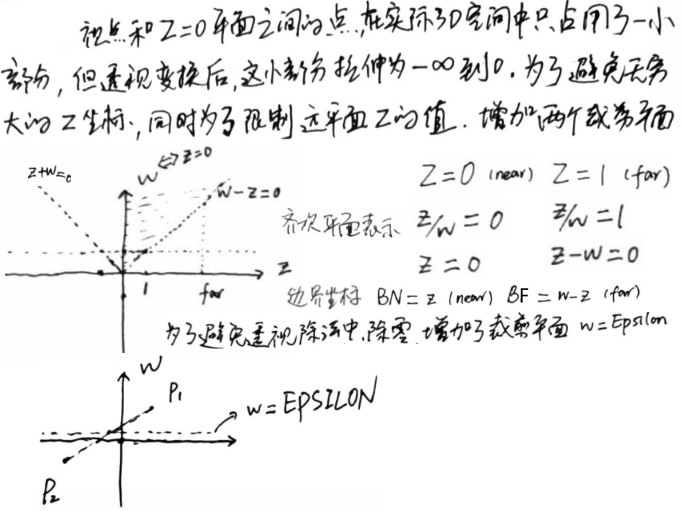 视点和Z=0平面之间的点,在实际3D空间中只占用了一小
部分,但透视变换后,这小部分拉伸为-∞到0。为了避免无穷
大的Z坐标,同时为了限制远平面Z的值.增加两个裁剪平面
W <=> z=0
z+w=0
w-z=0
z
1
far
Z=0 (near) Z=1 (far)
齐次平面表示 z/w=0 z/w=1
z=0 z-w=0
边界坐标 BN=z (near) BF=w-z (far)
为了避免透视除法中,除零,增加了裁剪平面 w=Epsilon
W
P₁
w=EPSILON
P₂